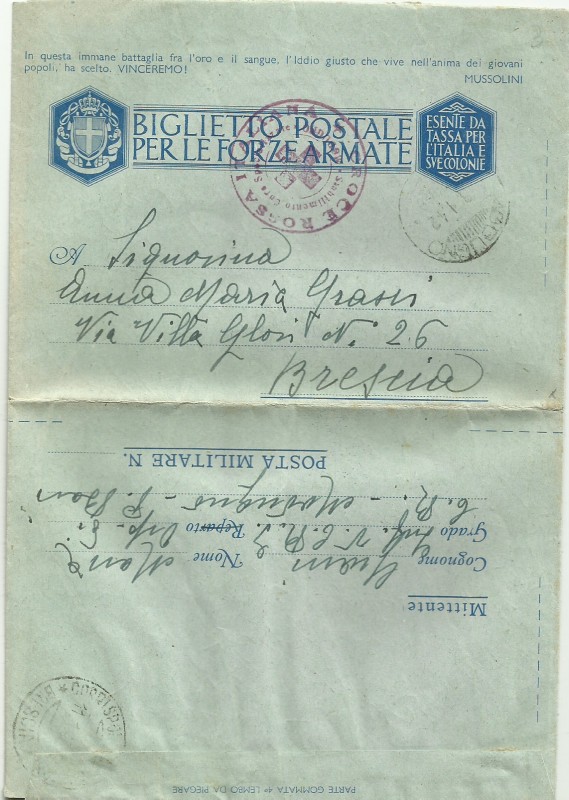 In questa immane battaglia fra l'oro e il sangue, l'Iddio giusto che vive nell'anima dei giovani
popoli, ha scelto. VINCEREMO!
MUSSOLINI
BIGLIETTO POSTALE
PER LE FORZE ARMATE
ESENTE DA
TASSA PER
L'ITALIA E
SVE COLONIE
CROCE ROSSA
A Signorina
Anna Maria Grassi
Via Villa Glori N. 26
Brescia
Mittente
Cognome Nome Maria
Grado Inf. V. C.R.I. Reparto Osp.
C. R. - Modugno - P. Bari
POSTA MILITARE N.
PARTE GOMMATA 4º LEMBO DA PIEGARE